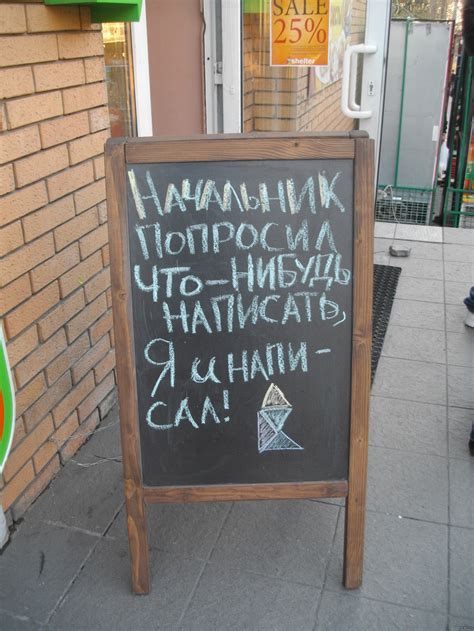 SALE
25%
shelter
НАЧАЛЬНИК
ПОПРОСИЛ
ЧТО-НИБУДЬ
НАПИСАТЬ,
Я И НАПИ-
САЛ!